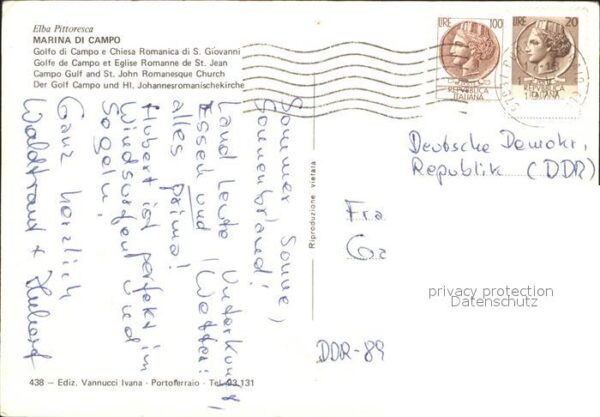 Elba Pittoresca
MARINA DI CAMPO
Golfo di Campo e Chiesa Romanica di S. Giovanni
Golfe de Campo et Eglise Romanne de St. Jean
Campo Gulf and St. John Romanesque Church
Der Golf Campo und Hl. Johannesromanischekirche
LIRE 100
REPVBBLICA
ITALIANA
LIRE 20
REPVBBLICA
ITALIANA
Sommer, Sonne,
Sonnenbrand!
Land, Leute, Unterkunft,
Essen und (Wetter:
alles prima!
Hubert ist perfekt im
Windsurfen und
Segeln.
Ganz herzlich
Waldtraud + Hubert
Riproduzione vietata
Deutsche Demokr.
Republik (DDR)
Fra
Ga
privacy protection
Datenschutz
DDR-89
438 - Ediz. Vannucci Ivana - Portoferraio - Tel. 93.131